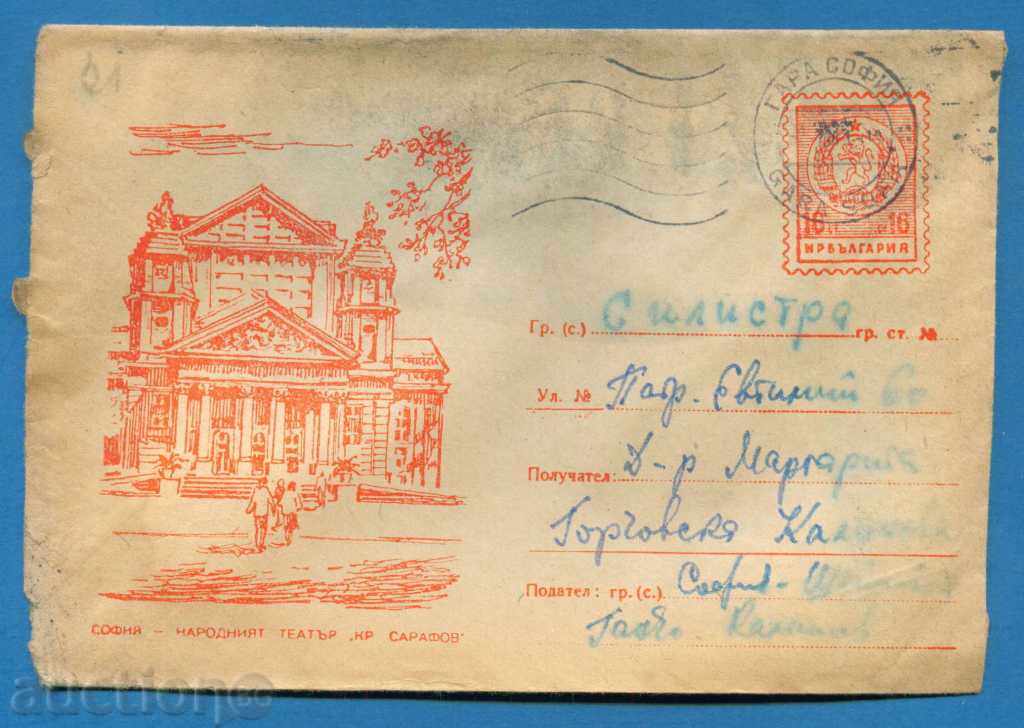 21
ГАРА СОФИЯ
16 16
НРБЪЛГАРИЯ
Гр. (с.) Силистра гр. ст. №
Ул. № Патр. Евтимий
Получател: Д-р Маргарита
Горчовска
Подател: гр. (с.) София -
СОФИЯ – НАРОДНИЯТ ТЕАТЪР „КР САРАФОВ"
auction